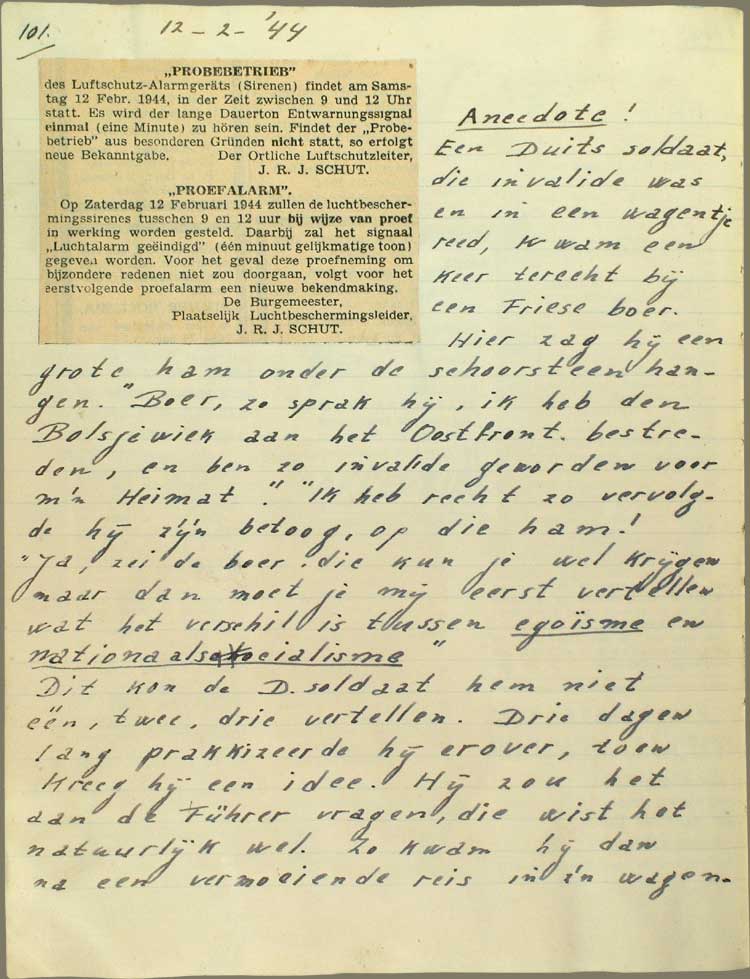 101.
12-2-'44
„PROBEBETRIEB"
des Luftschutz-Alarmgeräts (Sirenen) findet am Sams-
tag 12 Febr. 1944, in der Zeit zwischen 9 und 12 Uhr
statt. Es wird der lange Dauerton Entwarnungssignal
einmal (eine Minute) zu hören sein. Findet der „Probe-
betrieb" aus besonderen Gründen nicht statt, so erfolgt
neue Bekanntgabe. Der Ortliche Luftschutzleiter,
J. R. J. SCHUT.
„PROEFALARM".
Op Zaterdag 12 Februari 1944 zullen de luchtbescher-
mingssirenes tusschen 9 en 12 uur bij wijze van proef
in werking worden gesteld. Daarbij zal het signaal
„Luchtalarm geëindigd" (één minuut gelijkmatige toon)
gegeven worden. Voor het geval deze proefneming om
bijzondere redenen niet zou doorgaan, volgt voor het
eerstvolgende proefalarm een nieuwe bekendmaking.
De Burgemeester,
Plaatselijk Luchtbeschermingsleider,
J. R. J. SCHUT.
Anecdote !
Een Duits soldaat,
die invalide was
en in een wagentje
reed, kwam een
keer terecht bij
een Friese boer.
Hier zag hij een
grote ham onder de schoorsteen han-
gen. "Boer, zo sprak hij, ik heb den
Bolsjewiek aan het Oostfront. bestre-
den, en ben zo invalide geworden voor
m'n Heimat". "Ik heb recht zo vervolg-
de hij zijn betoog, op die ham!
"Ja, zei de boer, die kun je wel krijgen
maar dan moet je mij eerst vertellen
wat het verschil is tussen egoïsme en
nationaalsocialisme"
Dit kon de D. soldaat hem niet
één, twee, drie vertellen. Drie dagen
lang prakkizeerde hij erover, toen
kreeg hij een idee. Hij zou het
aan de Führer vragen, die wist het
natuurlijk wel. Zo kwam hij dan
na een vermoeiende reis in z'n wagen-